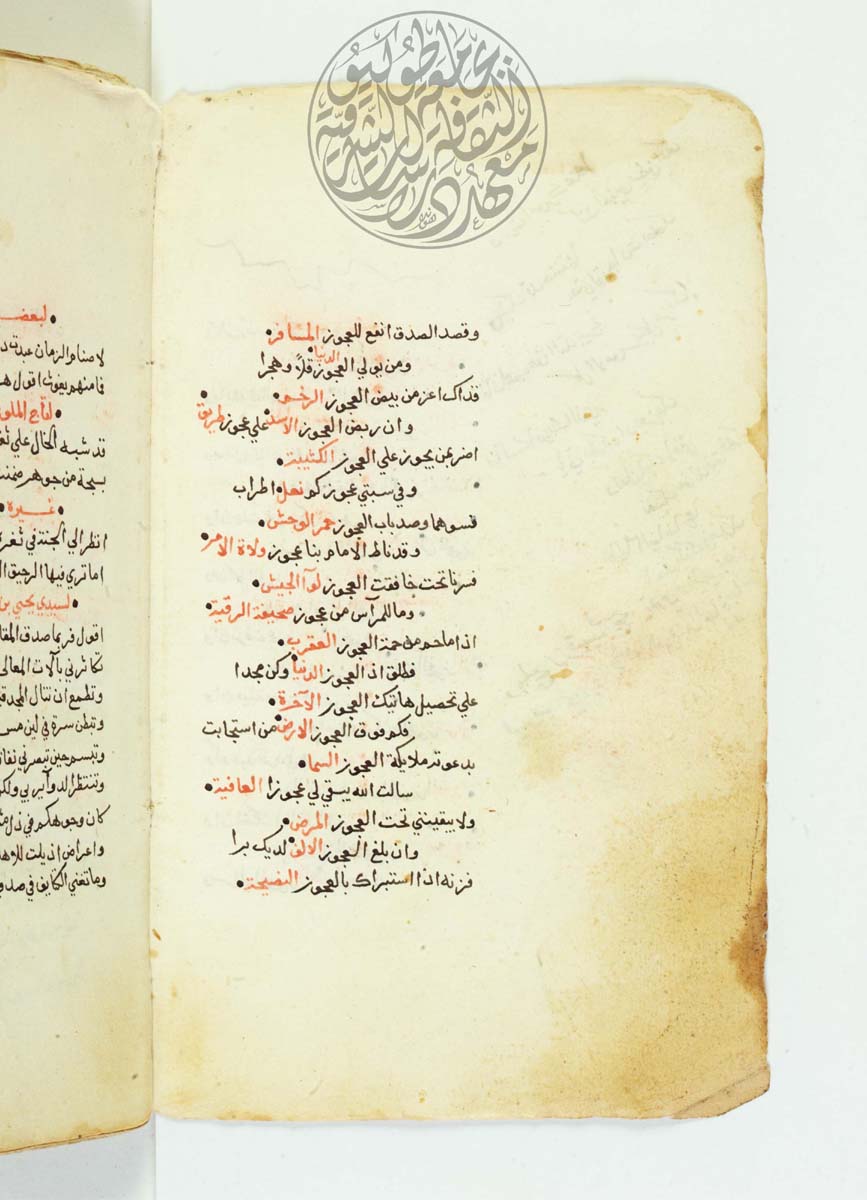 وقصد الصدق انفع للعجوز المسافر
ومن يولي العجوز الدنيا قلاً وهجرا
فذاك اعز من بيض العجوز الرخم
وان ربض العجوز الاسد علي عجوز طريق
اضر بمن يجوز علي العجوز الكتيبة
وفي سبتي عجوز كم نعل اطراب
وصد باب العجوز حمر الوحش
وقد ناط الامام بنا عجوز ولاة الامر
فسرنا تحت خافقت العجوز لوآ الجيش
وما للمرآس من عجوز صحيفة الرقية
اذا ما من حمة العجوز العقرب
فطلق اذ العجوز الدنيا وكن مجدا
علي تحصيل هاتيك العجوز الآخرة
فكم فوق العجوز الارض من استجابت
بدعوته ملايكة العجوز السما
سالت الله يبقي لي عجوزا العافية
ولا يبقينني تحت العجوز المرض
وان بلغ العجوز الالف لديك برا
فزنه اذا استبراك بالعجوز النصيحة
لبعض
لاصنام الزمان عبدت
فامنهم يغوث اقول
لتاج الملوك
قد شبه الخال علي
سبحة من جوهر ضمنت
غيره
انظر الي الجنة في ثغره
اما تري فيها الرحيق
لسيدي يحيي بن
اقول فربما صدق
تكاثرني بآلات المعالي
وتطمع ان تنال المجد
وتبطن سرة في لين مس
وتبسم حين تبصرني
وتنتظر الدوآير بي ولكن
كان وجوهكم في ذل
واعراض اذيلت
وما تغني الكتايف في
جامعة طوكيو
معهد دراسات الثقافة الشرقية